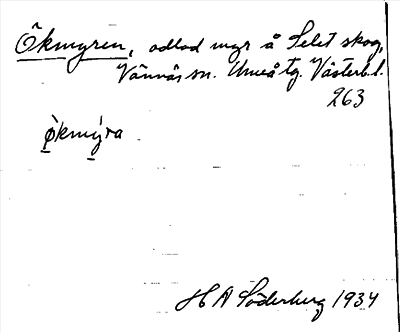 Ökmyren, odlad myr å Selet skog,
Vännäs sn. Umeå tg. Västerb.l.
263
ö̀kmýra
H A Söderberg 1934